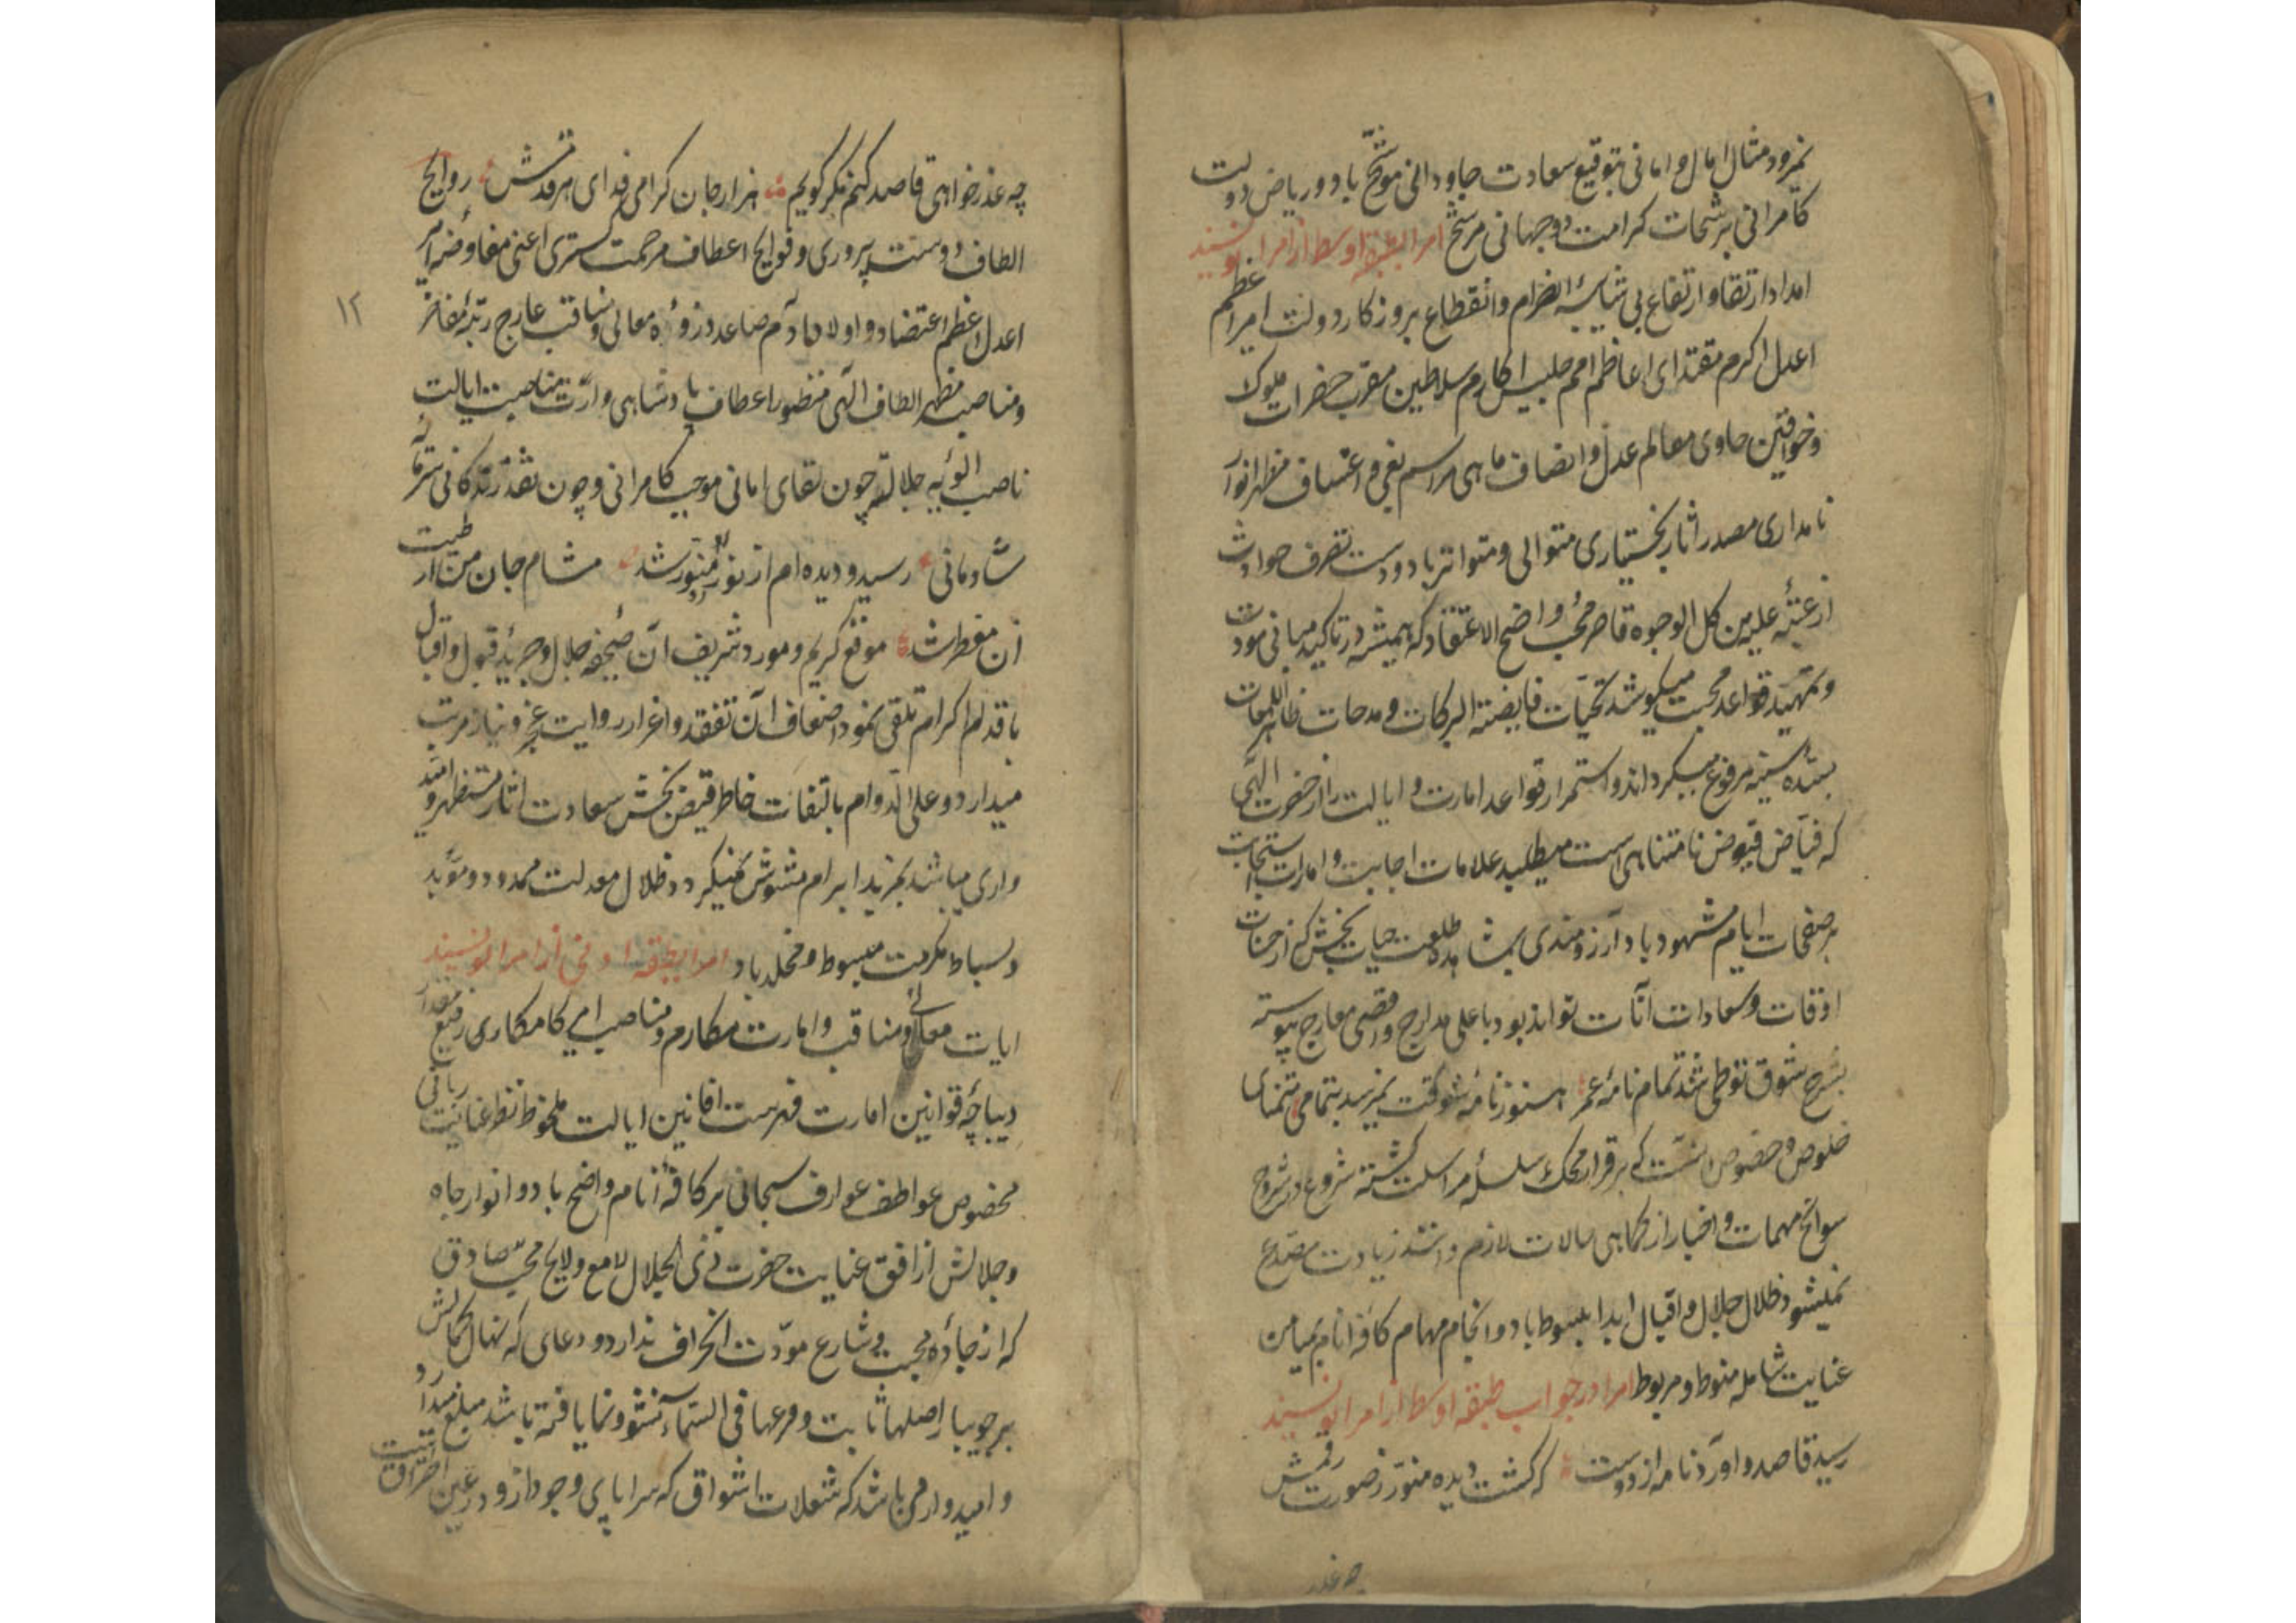 نمرود مثال امال و امانی بتوقیع سعادت جاودانی موشح باد و ریاض دولت
کامرانی برشحات کرامت دوجهانی مرشح امرا بطبقه اوسط از امرا نویسند
امداد ارتقا و ارتفاع بی شایبه انصرام و انقطاع بروزکار دولت امیر اعظم
اعدل اکرم مقتدای اعاظم امم جلیس اکارم سلاطین مقرب حضرات ملوک
و خواقین حاوی معالم عدل و انصاف ماهی مراسم بغی و اعتساف مظهر انوار
نامداری مصدر اثار بختیاری متوالی و متواتر باد و دست تصرف حوادث
از عتبه علیه من کل الوجوه قاصر محب واضح الاعتقاد که همیشه در تاکید مبانی مودت
و تمهید قواعد محبت میکوشد تحیات فایضة البرکات و مدحات ظاهر اللمعات
بسده سنیه مرفوع میکرداند و استمرار قواعد امارت و ایالت را از حضرت الهی
که فیاض فیوض نامتناهی است میطلبد علامات اجابت و امارات استجابت
بر صفحات ایام مشهود باد آرزومندی بمشاهده طلعت حیات بخش که از حسنات
اوقات و سعادات آنات تواند بود باعلی مدارج و اقصی معارج پیوسته
بشرح شوق تو طی شد تمام نامه عمر هنوز نامه شوکت نمیرسد بتمامی متمنای
خلوص و خصوص انست که برقرار محرک سلسله مراسلت کشته شروع در شروح
سوانح مهمات و اخبار از کماهی حالات لازم دانند زیادت مصدع
نمیشود ظلال جلال و اقبال ابدا مبسوط باد و انجام مهام کافه انام بمیامن
عنایت شامله منوط و مربوط امرا در جواب طبقه اوسط از امرا نویسند
رسید قاصد و آورد نامه از دوست که کشت دیده منور ز صورت رقمش
چه عذر
چه عذرخواهی قاصد کنم مکر کویم هزار جان کرامی فدای هر قدمش روایح
الطاف دوست پروری و فوایح اعطاف مرحمت کستری اعنی مفاوضه امیر
اعدل اعظم اعتضاد اولاد آدم صاعد ذروه معالی و مناقب عارج رتبه مفاخر
و مناصب مظهر الطاف الهی منظور اعطاف پادشاهی وارث مناصب ایالت
ناصب الویه جلالت چون لقای امانی موجب کامرانی و چون نقد زندکانی سرمایه
شادمانی رسید و دیده ام از نور منور شد مشام جان من از طیب
آن معطر شد موقع کریم و مورد شریف آن صحیفه جلال و جریده قبول و اقبال
باقدام اکرام تلقی نمود اضعاف آن تفقد و اعزاز روایت عجز و نیاز مرتب
میدارد و علی الدوام بالتفات خاطر فیض بخش سعادت اثار مستظهر و امید
واری میباشد بمزید ابرام مشوش نمیکردد ظلال معدلت ممدود و موبد
و بساط مکرمت مبسوط و مخلد باد امرا بطبقه ادنی از امرا نویسند
ایات معالی و مناقب و امارت مکارم و مناصب امیر کامکاری رفیع مقدار
دیباچه قوانین امارت فهرست افانین ایالت ملحوظ نظر عنایت ربانی
مخصوص عواطف عوارف سبحانی بر کافه انام واضح باد و انوار جاه
و جلالش از افق عنایت حضرت ذی الجلال لامع و لایح محب صادق
که از جاده محبت و شارع مودت انحراف ندارد و دعای که نهال کمالش
بر جویبار اصلها ثابت و فرعها فی السماء نشو و نما یافته باشد مبلغ میدارد
و امیدوار می باشد که شعلات اشواق که سراپای وجود ازو در عین احتراقست
۱۲